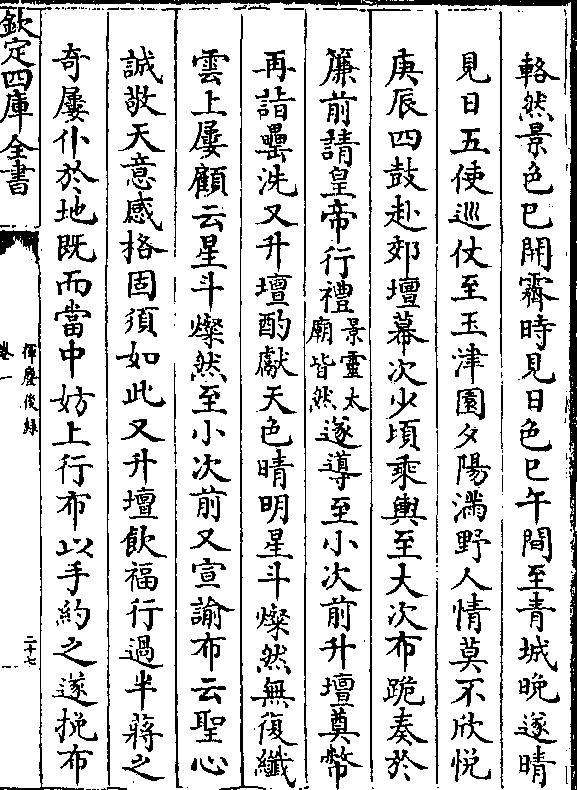 輅然景色已開霽時見日色巳午間至青城晚遂晴
見日五使巡仗至玉津園夕陽滿野人情莫不欣悦
庚辰四鼓赴郊壇幕次少頃乗輿至大次布跪奏於
簾前請皇帝行禮景靈太廟皆然遂導至小次前升壇奠幣
再詣罍洗又升壇酌獻天色晴明星斗燦然無復纖
雲上屢顧云星斗燦然至小次前又宣諭布云聖心
誠敬天意感格固須如此又升壇飲福行過半蔣之
奇屢仆於地既而當中妨上行布以手約之遂挽布
欽定四庫全書
揮麈後録
卷一
二十七